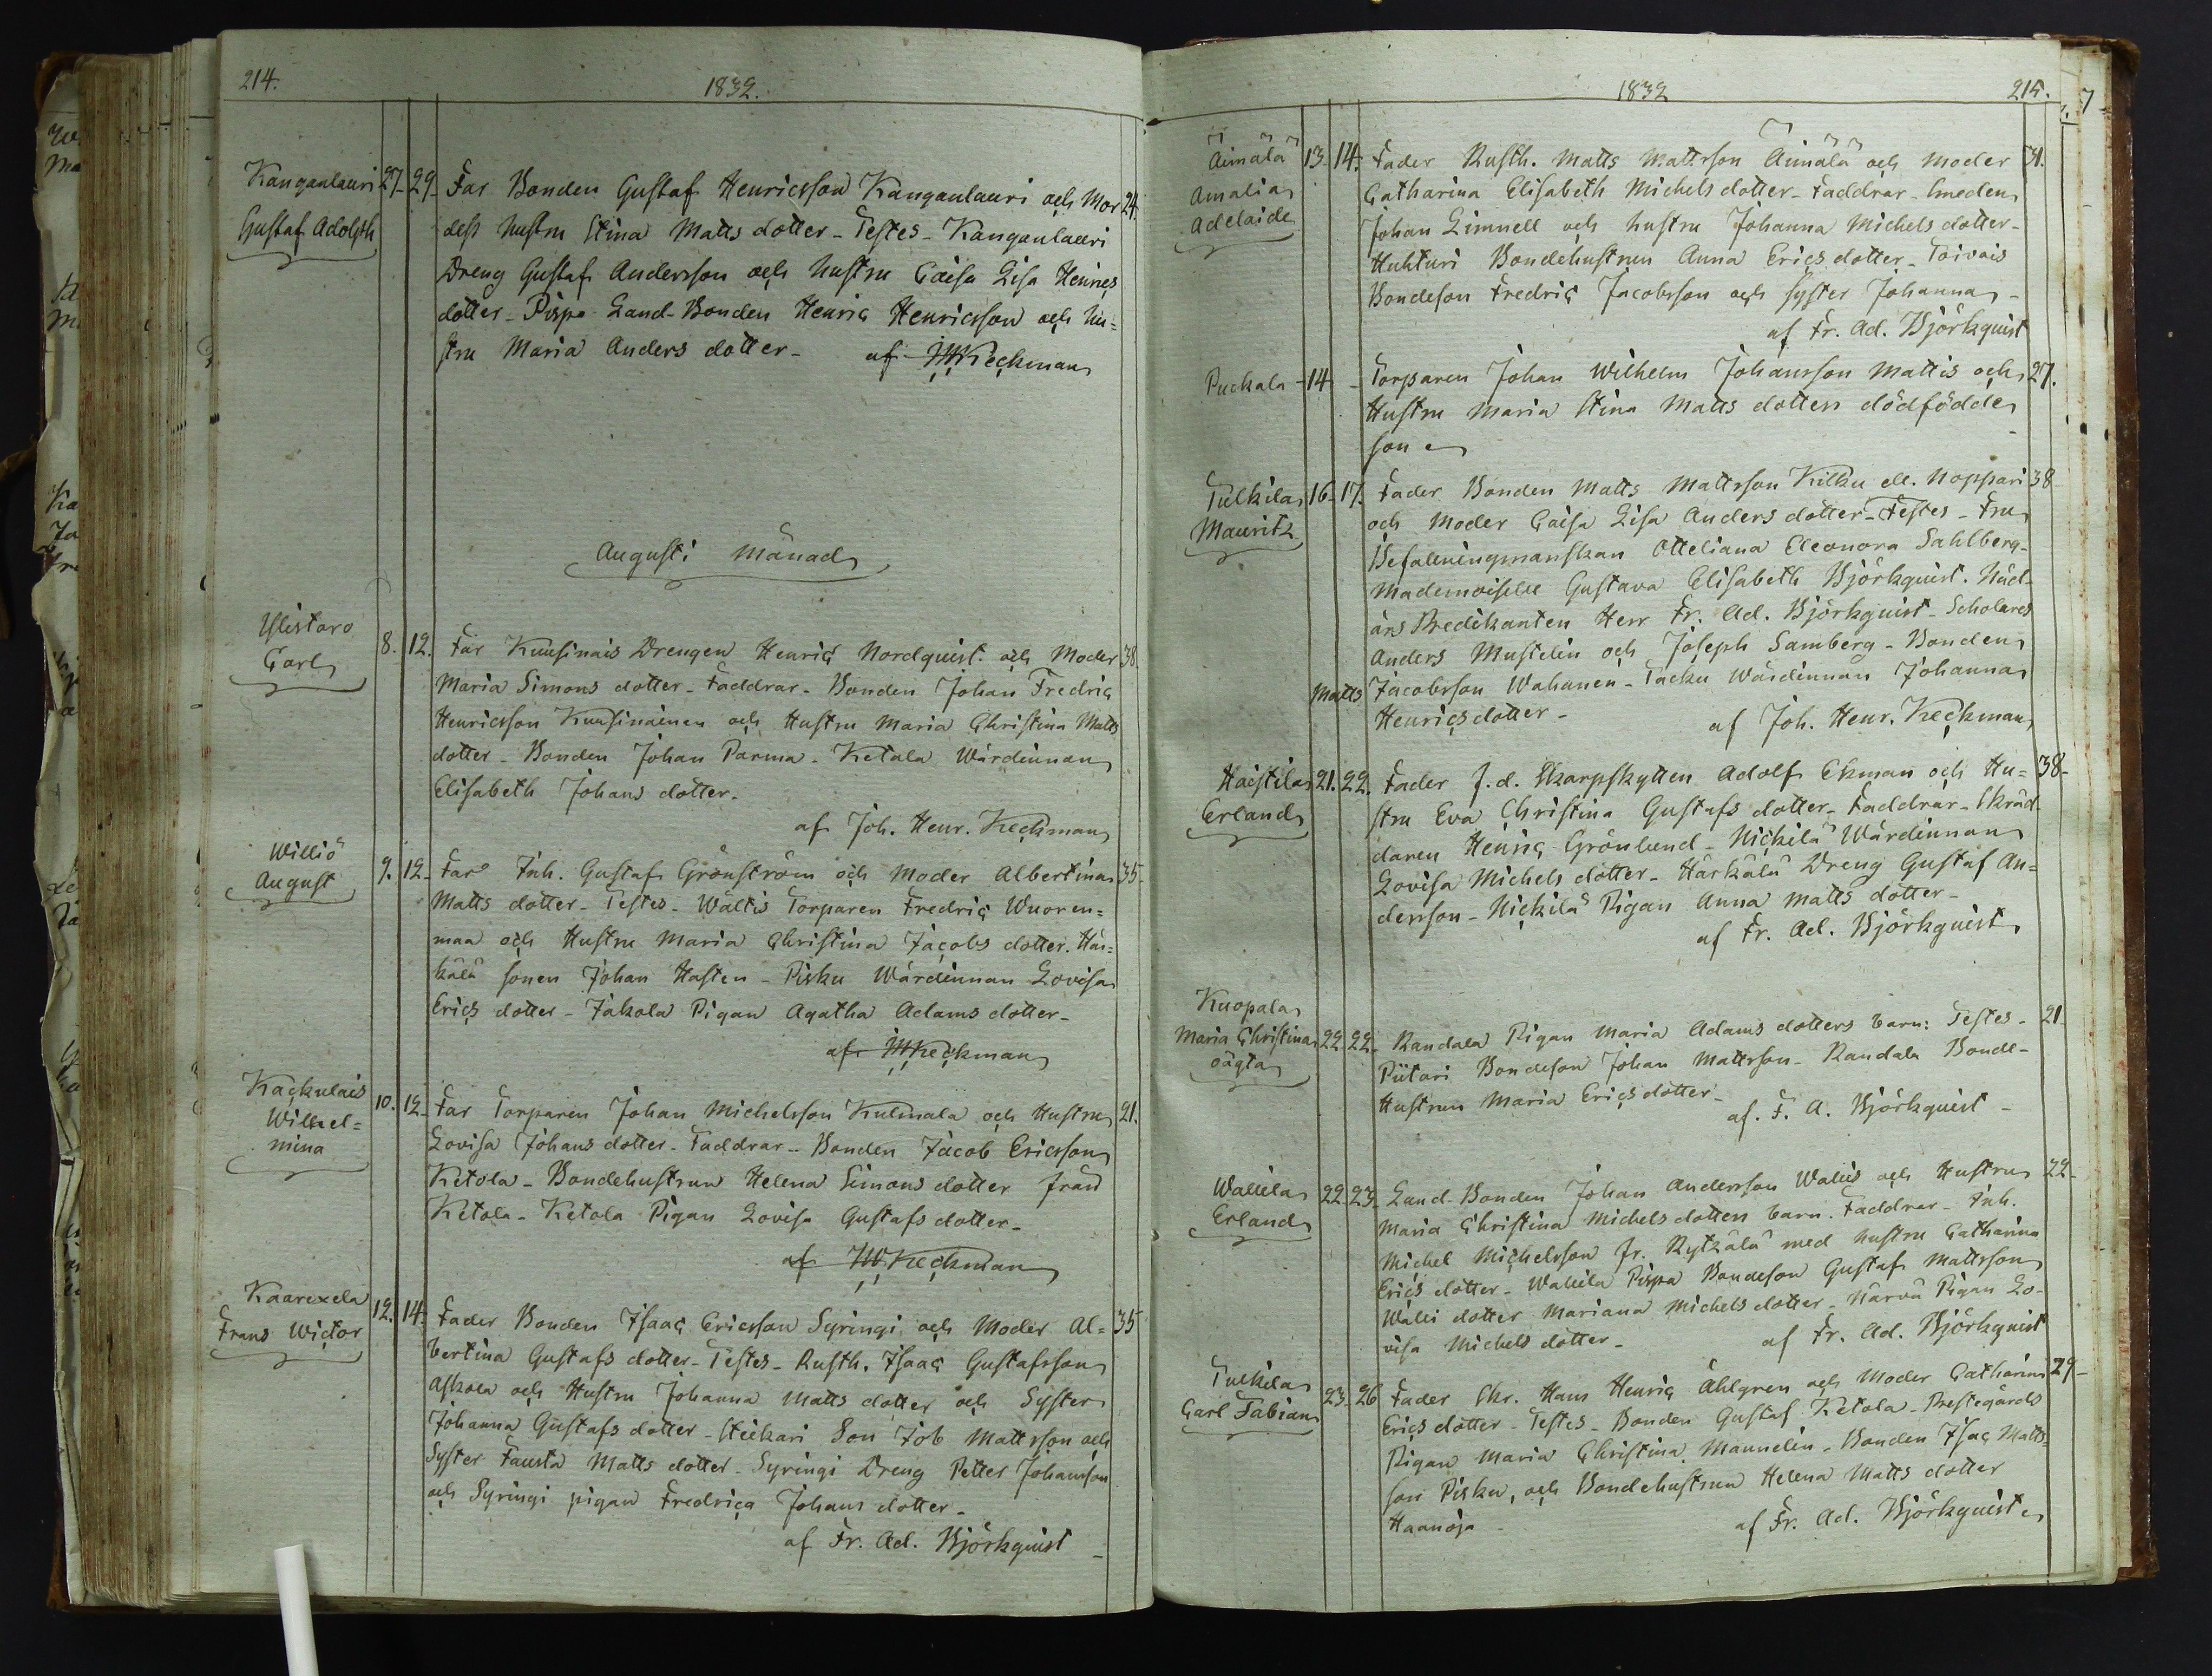 214.
1832.
Kangaulauri 27. 29. Far Bonden Gustaf Henricsson Kangaulauri och Mor 24.
Gustaf Adolph dess hustru Stina Matts dotter - Testes - Kangaulauri
Dreng Gustaf Andersson och hustru Caisa Lisa Henrics
dotter - Pispa Land-Bonden Henric Henricsson och hu=
stru Maria Anders dotter - af Keckman
Augusti Månad
Ylistaro 8. 12. Far Kuusinais Drengen Henric Nordquist och Moder 38.
Carl Maria Simons dotter - Faddrar - Bonden Johan Fredric
Henricsson Kuusinainen och Hustru Maria Christina Matts
dotter - Bonden Johan Parma - Ketala Wärdinnan
Elisabeth Johans dotter.
af Joh. Henr. Keckman
Williö 9. 12. Far Inh. Gustaf Grönström och Moder Albertina 35.
August Matts dotter - Testes - Wältis Torparen Fredric Wuoren=
maa och Hustru Maria Christina Jacobs dotter. Här=
kälä sonen Johan Hasten - Pisku Wärdinnan Lovisa
Erics dotter - Jakola Pigan Agatha Adams dotter -
af Keckman
Kackulais 10. 12. Far Torparen Johan Michelsson Kulmala och Hustru 21.
Wilhel= Lovisa Johans dotter - Faddrar - Bonden Jacob Ericsson
mina Ketola - Bondehustrun Helena Simons dotter från
Ketola - Ketola Pigan Lovisa Gustafs dotter -
af Keckman
Kaarexela 12. 14. Fader Bonden Isaac Ericsson Syringi och Moder Al= 35
Frans Wictor bertina Gustafs dotter - Testes - Rusth. Isaac Gustafsson
Askola och Hustru Johanna Matts dotter och Syster
Johanna Gustafs dotter - Son Job Mattsson och
Syster Fausta Matts dotter - Syringi Dreng Petter Johansson
och Syringi pigan Fredrica Johans dotter -
af Fr. Ad. Björkquist
1832
215.
Äimälä 13. 14. Fader Rusth. Matts Mattsson Äimälä och Moder 31.
Amalia Catharina Elisabeth Michels dotter - Faddrar - Smeden
Adelaide Johan Limnell och hustru Johanna Michels dotter -
Huhturi Bondehustrun Anna Erics dotter - Toivois
Bondeson Fredric Jacobsson och syster Johanna -
af Fr. Ad. Björkquist
Puckala - 14 - Torparen Johan Wilhelm Johansson Mattis och 27.
Hustru Maria Stina Matts dotters dödfödde
son
Tulkila 16. 17. Fader Bonden Matts Mattsson Kilku ell. Noppari 38
Mauritz och Moder Caisa Lisa Anders dotter - Testes - Fru
Befallningmanskan Otteliana Eleonora Sahlberg -
Mademoiselle Gustava Elisabeth Björkquist. Nåd-
års Predikanten Herr Fr. Ad. Björkquist - Scholares
Anders Mustelin och Joseph Samberg - Bonden
Matts Jacobsson Wahanen - Tacku Wärdinnan Johanna
Henrics dotter - af Joh. Henr. Keckman
Haistila 21. 22. Fader f. d. Skarpskytten Adolf Ekman och Hu= 38-
Erland stru Eva Christina Gustafs dotter - Faddrar - Skräd
daren Henric Grönlund - Nickilä Wärdinnan
Lovisa Michels dotter - Härkälä Dreng Gustaf An=
dersson - Nickilä Pigan Anna Matts dotter -
af Fr. Ad. Björkquist
Kuopala
Maria Christina 22. 22. Randala Pigan Maria Adams dotters barn: Testes - 21.
oägta Piitari Bondeson Johan Mattsson - Randala Bonde-
Hustrun Maria Erics dotter -
af. F. A. Björkquist -
Wallila 22. 23. Land-Bonden Johan Andersson Wallis och Hustru 22-
Erland Maria Christina Michels dotters barn. Faddrar - Inh.
Michel Michelsson fr. Rytkälä med hustru Catharina
Erics dotter - Wallila Pispa Bondeson Gustaf Mattsson
dotter Mariana Michels dotter - Närvä Pigan Lo-
visa Michels dotter - af Fr. Ad. Björkquist
Tulkila 23. 26 Fader Skr. Hans Henric Åhlgren och Moder Catharina 29-
Carl Fabian Erics dotter - Testes - Bonden Gustaf Ketola - Prestegårds
Pigan Maria Christina Mannelin - Bonden Isac Matts=
son Pisku, och Bondehustrun Helena Matts dotter
Haanoja - af Fr. Ad. Björkquist